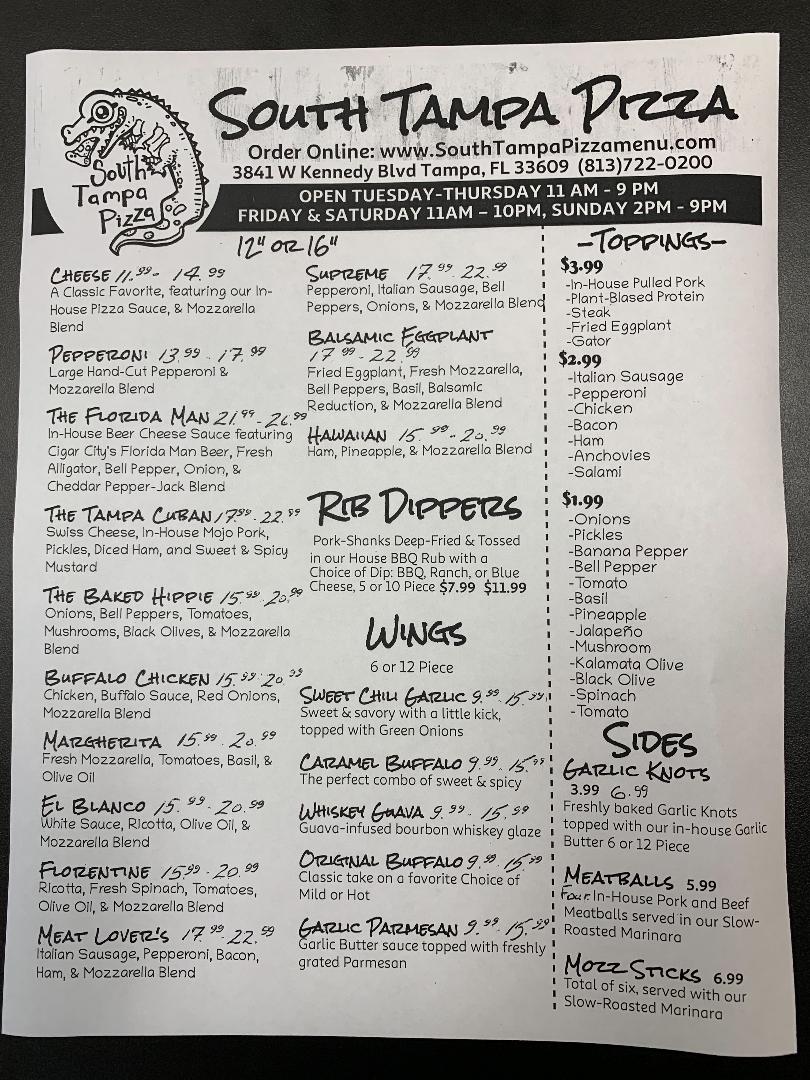 South Tampa Pizza
South
Tampa
Pizza
Order Online: www.SouthTampaPizzamenu.com
3841 W Kennedy Blvd Tampa, FL 33609 (813)722-0200
OPEN TUESDAY-THURSDAY 11 AM - 9 PM
FRIDAY & SATURDAY 11AM – 10PM, SUNDAY 2PM - 9PM
12" OR 16"
CHEESE 11.99 - 14.99
A Classic Favorite, featuring our In-
House Pizza Sauce, & Mozzarella
Blend
PEPPERONI 13.99 - 17.99
Large Hand-Cut Pepperoni &
Mozzarella Blend
THE FLORIDA MAN 21.99 - 26.99
In-House Beer Cheese Sauce featuring
Cigar City's Florida Man Beer, Fresh
Alligator, Bell Pepper, Onion, &
Cheddar Pepper-Jack Blend
THE TAMPA CUBAN 17.99 - 22.99
Swiss Cheese, In-House Mojo Pork,
Pickles, Diced Ham, and Sweet & Spicy
Mustard
THE BAKED HIPPIE 15.99 - 20.99
Onions, Bell Peppers, Tomatoes,
Mushrooms, Black Olives, & Mozzarella
Blend
BUFFALO CHICKEN 15.99 - 20.99
Chicken, Buffalo Sauce, Red Onions,
Mozzarella Blend
MARGHERITA 15.99 - 20.99
Fresh Mozzarella, Tomatoes, Basil, &
Olive Oil
EL BLANCO 15.99 - 20.99
White Sauce, Ricotta, Olive Oil, &
Mozzarella Blend
FLORENTINE 15.99 - 20.99
Ricotta, Fresh Spinach, Tomatoes,
Olive Oil, & Mozzarella Blend
MEAT LOVER'S 17.99 22.99
Italian Sausage, Pepperoni, Bacon,
Ham, & Mozzarella Blend
SUPREME 17.99 - 22.99
Pepperoni, Italian Sausage, Bell
Peppers, Onions, & Mozzarella Blend
BALSAMIC EGGPLANT
17.99 - 22.99
Fried Eggplant, Fresh Mozzarella,
Bell Peppers, Basil, Balsamic
Reduction, & Mozzarella Blend
HAWAIIAN 15.99 - 20.99
Ham, Pineapple, & Mozzarella Blend
RIB DIPPERS
Pork-Shanks Deep-Fried & Tossed
in our House BBQ Rub with a
Choice of Dip: BBQ, Ranch, or Blue
Cheese, 5 or 10 Piece $7.99 $11.99
WINGS
6 or 12 Piece
SWEET CHILI GARLIC 9.99 - 15.99
Sweet & savory with a little kick,
topped with Green Onions
CARAMEL BUFFALO 9.99 - 15.99
The perfect combo of sweet & spicy
WHISKEY GUAVA 9.99 - 15.99
Guava-infused bourbon whiskey glaze
ORIGINAL BUFFALO 9.99 - 15.99
Classic take on a favorite Choice of
Mild or Hot
GARLIC PARMESAN 9.99 - 15.99
Garlic Butter sauce topped with freshly
grated Parmesan
-TOPPINGS-
$3.99
-In-House Pulled Pork
-Plant-Blased Protein
-Steak
-Fried Eggplant
-Gator
$2.99
-Italian Sausage
-Pepperoni
-Chicken
-Bacon
-Ham
-Anchovies
-Salami
$1.99
-Onions
-Pickles
-Banana Pepper
-Bell Pepper
-Tomato
-Basil
-Pineapple
-Jalapeño
-Mushroom
-Kalamata Olive
-Black Olive
-Spinach
-Tomato
SIDES
GARLIC KNOTS
3.99 6.99
Freshly baked Garlic Knots
topped with our in-house Garlic
Butter 6 or 12 Piece
MEATBALLS 5.99
Four In-House Pork and Beef
Meatballs served in our Slow-
Roasted Marinara
MOZZ STICKS 6.99
Total of six, served with our
Slow-Roasted Marinara